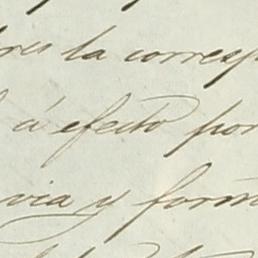 res la corresp
á efecto por
via y form